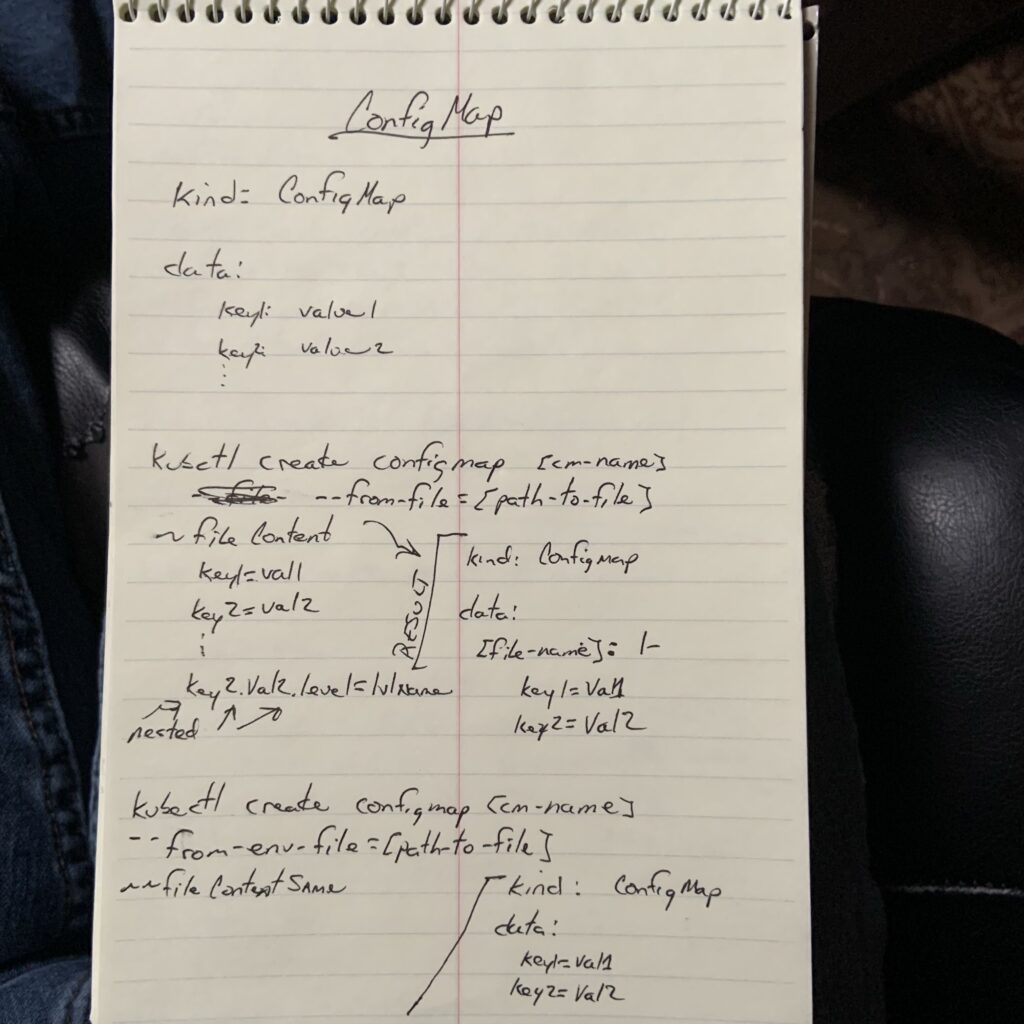 ConfigMap
kind= ConfigMap
data:
key1: value1
key2: value2
kubectl create configmap [cm-name]
--from-file=[path-to-file]
~ file Content
key1=val1
key2=val2
key2.val2.level=lvlName
nested
RESULT
kind: ConfigMap
data:
[file-name]: |-
key1=Val1
key2=Val2
kubectl create configmap [cm-name]
--from-env-file=[path-to-file]
~~file Content SAme
kind: ConfigMap
data:
key1=val1
key2=Val2